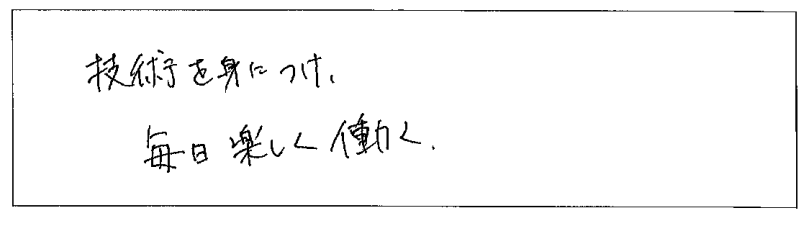 技術を身につけ、
毎日楽しく働く.